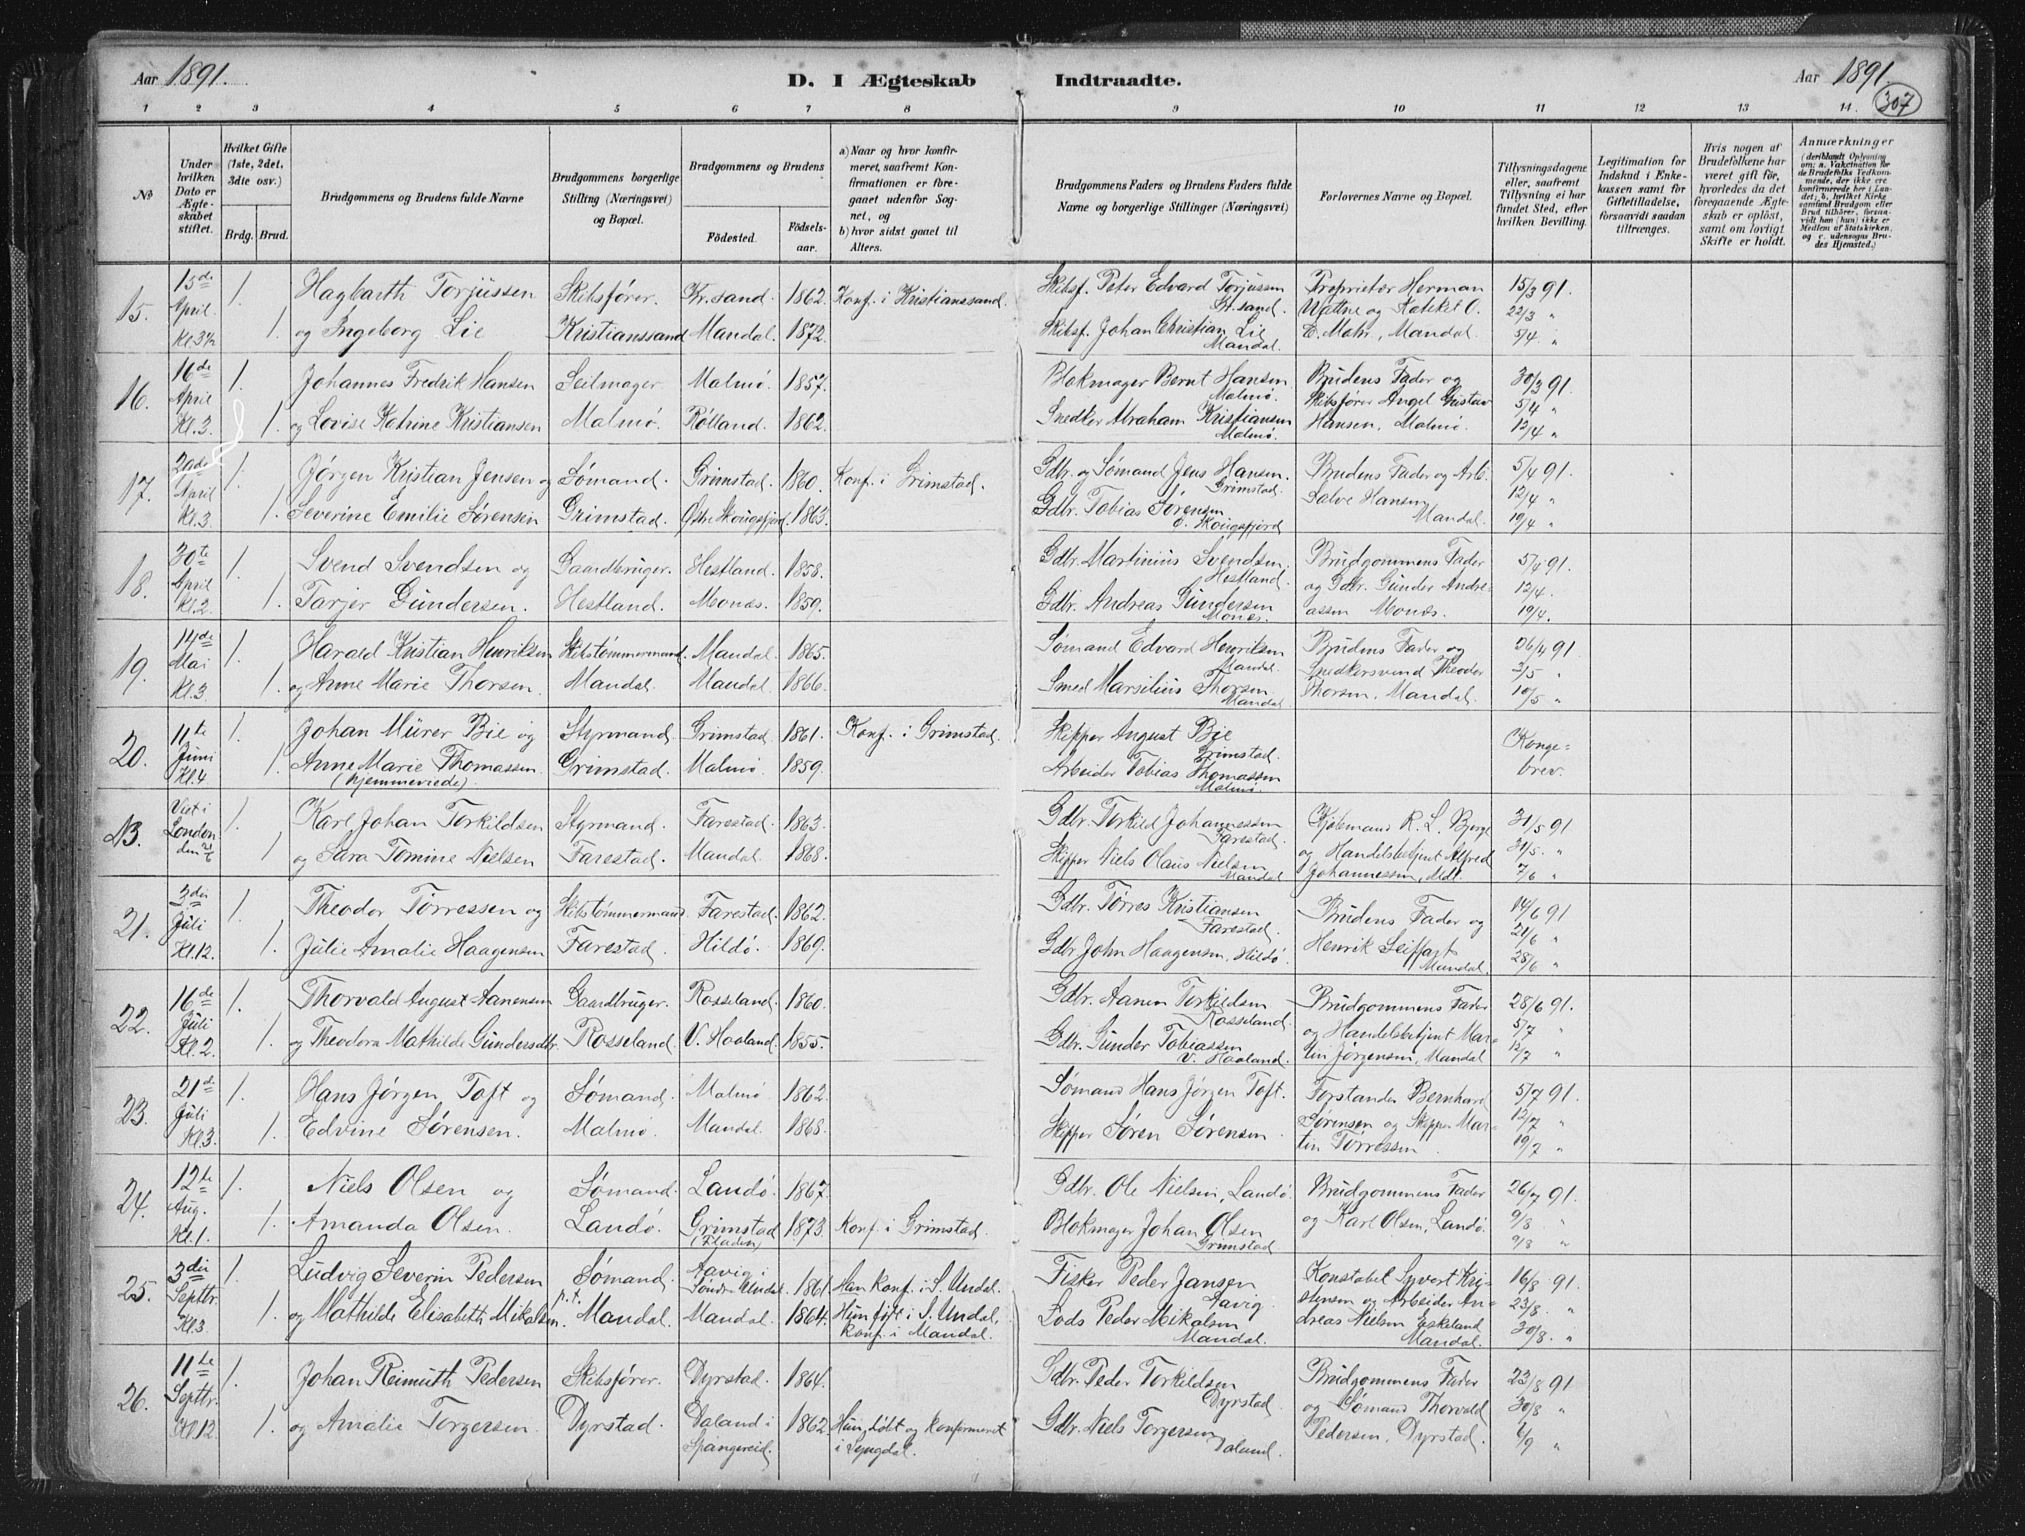 Aar 1891.
D. I Ægteskab Indtraadte.
Aar 1891.
307
1 2 3 4 5 6 7 8 9 10 11 12 13 14.
No
Under hvilken Dato er Ægteskabet stiftet.
Hvilket Gifte (1ste, 2det, 3die osv.)
Brdg. Brud.
Brudgommens og Brudens fulde Navne
Brudgommens borgerlige Stilling (Næringsvei) og Bopæl.
Brudgommens og Brudens
Födested. Födsels-aar.
a) Naar og hvor konfirmeret, saafremt Konfirmationen er foregaaet udenfor Sognet, og
b) hvor sidst gaaet til Alters.
Brudgommens Faders og Brudens Faders fulde Navne og borgerlige Stillinger (Næringsvei)
Forlovernes Navne og Bopæl.
Tillysningsdagene eller, saafremt Tillysning ei har fundet Sted, efter hvilken Bevilling.
Legitimation for Indskud i Enkekassen samt for Giftetilladelse, forsaavidt saadan tiltrænges.
Hvis nogen af Brudefolkene har været gift för, hvorledes da det foregaaende Ægteskab er oplöst, samt om lovligt Skifte er holdt.
Anmærkninger
(deriblandt Oplysning om: a. Vakcination for de Brudefolks Vedkommende, der ikke ere konfirmerede her i Landet; b. hvilket Kirkesamfund Brudgom eller Brud tilhörer, forsaavidt han (hun) ikke er Medlem af Statskirken, og c. udensogns Brudes Hjemsted.)
15. 15de April Kl. 3½ 1. Hagbarth Torjussen Skibsfører. Kr.sand. 1862. Konf. i Kristianssand. Skibsf. Peter Edvard Torjussen Kr.sand. Proprietær Herman 15/3 91.
1. og Ingeborg Lie Kristianssand Mandal. 1872. Skibsf. Johan Christian Lie Mandal. Wattne og Kateket O. E. Mohr, Mandal. 22/3 " 5/4 "
16. 16de April Kl. 3. 1. Johannes Fredrik Hansen Seilmager. Malmø. 1857. Blokmager Bernt Hansen Malmø. Brudens Fader og 30/3 91.
1. og Lovise Katrine Kristiansen Malmø. Rölland. 1862. Snedker Abraham Kristiansen Malmø. Skibsfører Angel Gustav Hansen, Malmø. 5/4 " 12/4 "
17. April Kl. 3 1. Jørgen Kristian Jensen og Sømand. Grimstad. 1860. Konf. i Grimstad. Gdbr. og Sømand Jens Hansen. Grimstad. Brudens Fader og Arb. 5/4 91.
1. Severine Emilie Sørensen Grimstad. Østre Skougsfjord. 1863. Gdbr. Tobias Sørensen ø. Skougsfjord Salve Hansen Mandal. 12/4 " 19/4 "
18. 30te April Kl. 2. 1. Svend Svendsen og Gaardbruger. Hestland. 1858. Gdbr. Martinius Svendsen, Hestland. Brudgommens Fader 5/4 91.
1. Tarjer Gundersen. Hestland. Mones. 1859. Gdbr. Andreas Gundersen Mones. og Gdbr. Gunder Andreassen Mones. 12/4. 19/4.
19. 14de Mai Kl. 3 1. Harald Kristian Henriksen Skibstømmermand. Mandal. 1865. Sømand Edvard Henriksen Mandal. Brudens Fader og 26/4 91.
1. og Anne Marie Thorsen. Mandal. Mandal. 1866. Smed Marsilius Thorsen. Mandal Snedkersvend Theodor Thorsen, Mandal. 3/5 " 10/5 "
20. 11te Juni Kl. 4 1. Johan Mürer Bie og Styrmand. Grimstad. 1861. Konf. i Grimstad. Skipper August Bie Grimstad. Konge-
1. Anne Marie Thomassen. (hjemmeviede). Grimstad. Malmø. 1859. Arbeider Tobias Thomassen Malmø. brev.
13. Viet i London den 21/6 1. Karl Johan Torkildsen Styrmand. Farestad. 1863. Gdbr. Torkild Johannessen Farestad. Kjøbmand R. L. Bjerge 31/5 91
1 og Sara Tomine Nielsen Farestad. Mandal. 1868. Skipper Niels Olaus Nielsen Mandal og Handelsbetjent Alfred Johannessen, Mdl. 31/5. " 7/6 "
21. 3die Juli Kl. 12. 1. Theodor Törressen og Skibstømmermand Farestad. 1862. Gdbr. Törres Kristiansen Farestad. Brudens Fader og 14/6 91
1. Julie Amalie Haagensen Farestad. Hildø. 1869. Gdbr John Haagensen, Hildø. Henrik Seiffart Mandal. 21/6 " 28/6 "
22. 16de Juli Kl. 2. 1. Thorvald August Aanensen Gaardbruger. Rosseland. 1860. Gdbr. Aanen Torkildsen Rosseland. Brudgommens Fader 28/6 91.
1. og Theodora Mathilde Gundersdtr. Rosseland. V. Haaland. 1855. Gdbr. Gunder Tobiassen V. Haaland. og Handelsbetjent Martin Jørgensen, Mandal 5/7 " 12/7 "
23. 21de Juli Kl. 3. 1. Hans Jørgen Toft og Sømand. Malmø 1862. Sømand Hans Jørgen Toft. Forstander Bernhard 5/7 91.
1. Edvine Sørensen. Malmø. Mandal. 1868. Skipper Søren Sørensen. Sørensen og Skipper Martin Törressen. 12/7 " 19/7 "
24. 12te Aug. Kl. 1. 1. Niels Olsen og Sømand. Landø. 1867. Gdbr. Ole Nielsen, Landø. Brudgommens Fader 26/7 91.
1. Amanda Olsen. Landø. Grimstad (Fladen) 1873. Konf. i Grimstad. Blokmager Johan Olsen Grimstad og Karl Olsen, Landø. 9/8 " 9/8 "
25. 3die Septbr. Kl. 3. 1. Ludvig Severin Pedersen Sømand. Aavig i Søndre Undal. 1861. Han konf. i S. Undal. Fisker Peder Jansen Aavig. Konstabel Syvert Kri- 16/8 91.
1. og Mathilde Elisabeth Mikalsen. p.t. Mandal. Mandal. 1864. Hun født i S. Undal, konf. i Mandal. Lods Peder Mikalsen Mandal. stensen og Arbeider Andreas Nielsen Eskeland Mandal. 23/8. " 30/8. "
26. 11te Septbr. Kl. 12. 1. Johan Reimuth Pedersen Skibsfører. Dyrstad. 1864. Gdbr. Peder Torkildsen Dyrstad. Brudgommens Fader 23/8 91
1. og Amalie Torgersen. Dyrstad. Daland i Spangereid. 1862. Hun døbt og konfirmeret i Lyngdal. Gdbr. Niels Torgersen Daland. og Sømand Thorvald Pedersen, Dyrstad. 30/8 " 6/9 "